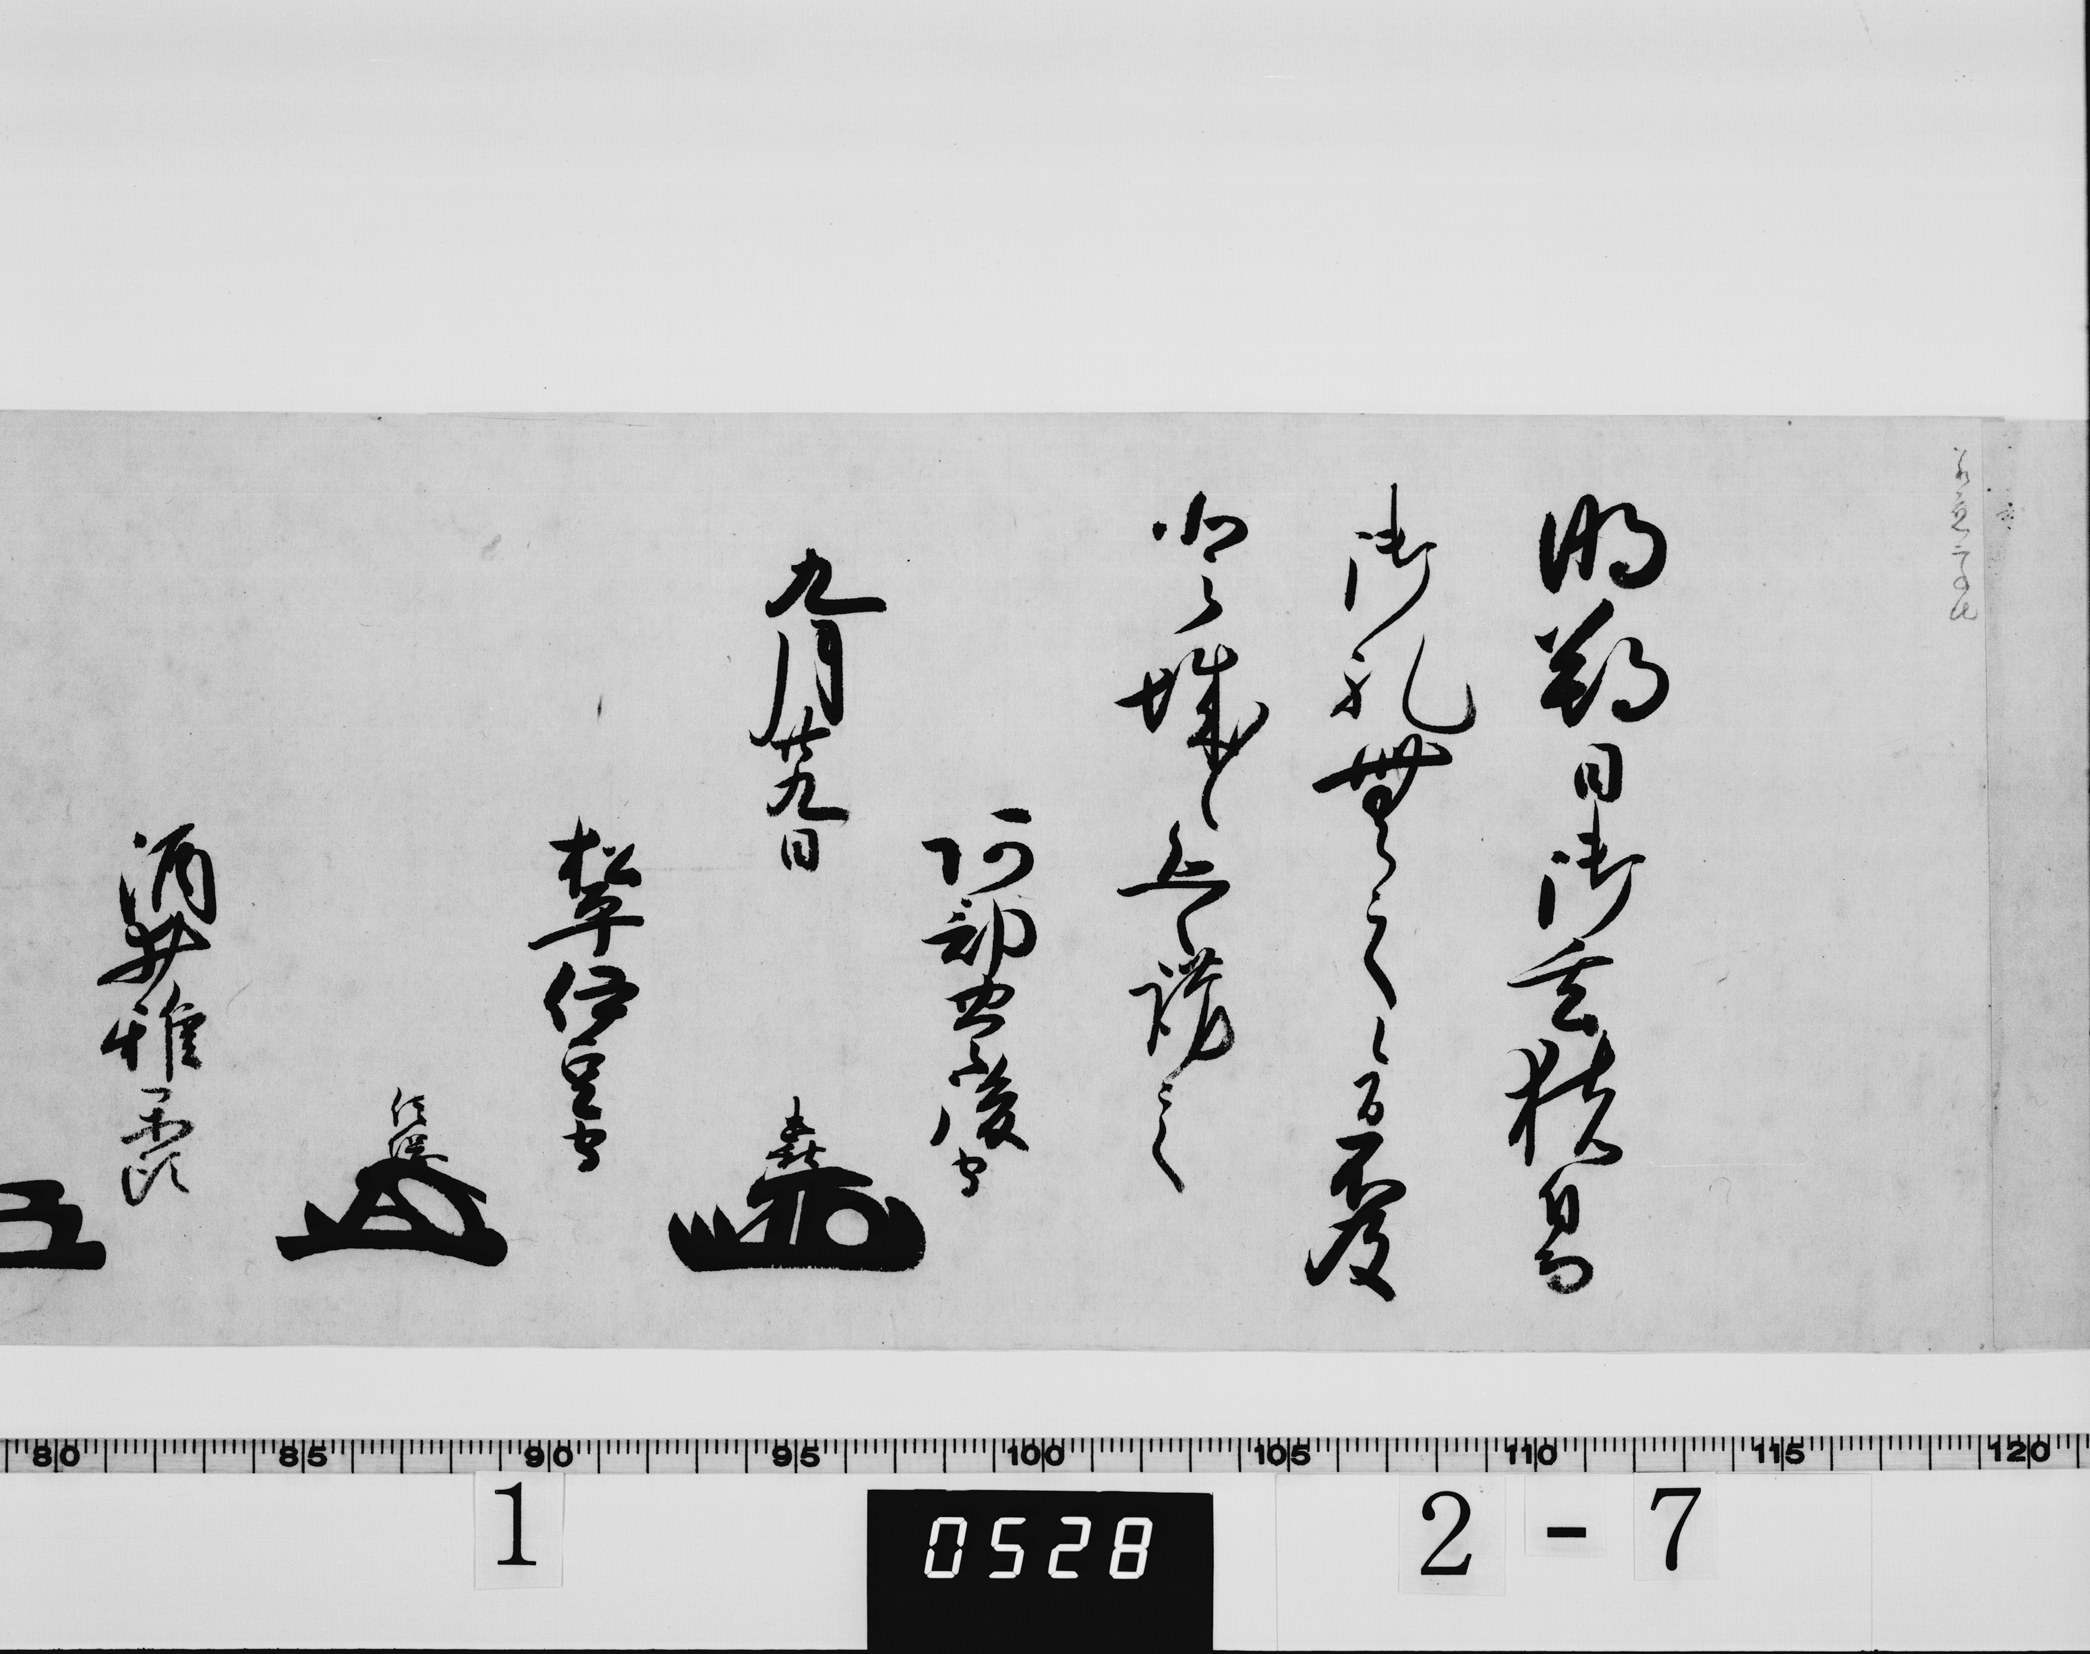 明朔日御玄猪為
御礼無之候間不及
登城候恐々謹言
阿部豊後守
九月廿九日
忠秋
松平伊豆守
信綱
酒井雅楽頭
80 85 90 95 100 105 110 115 120
1
0528
2-7